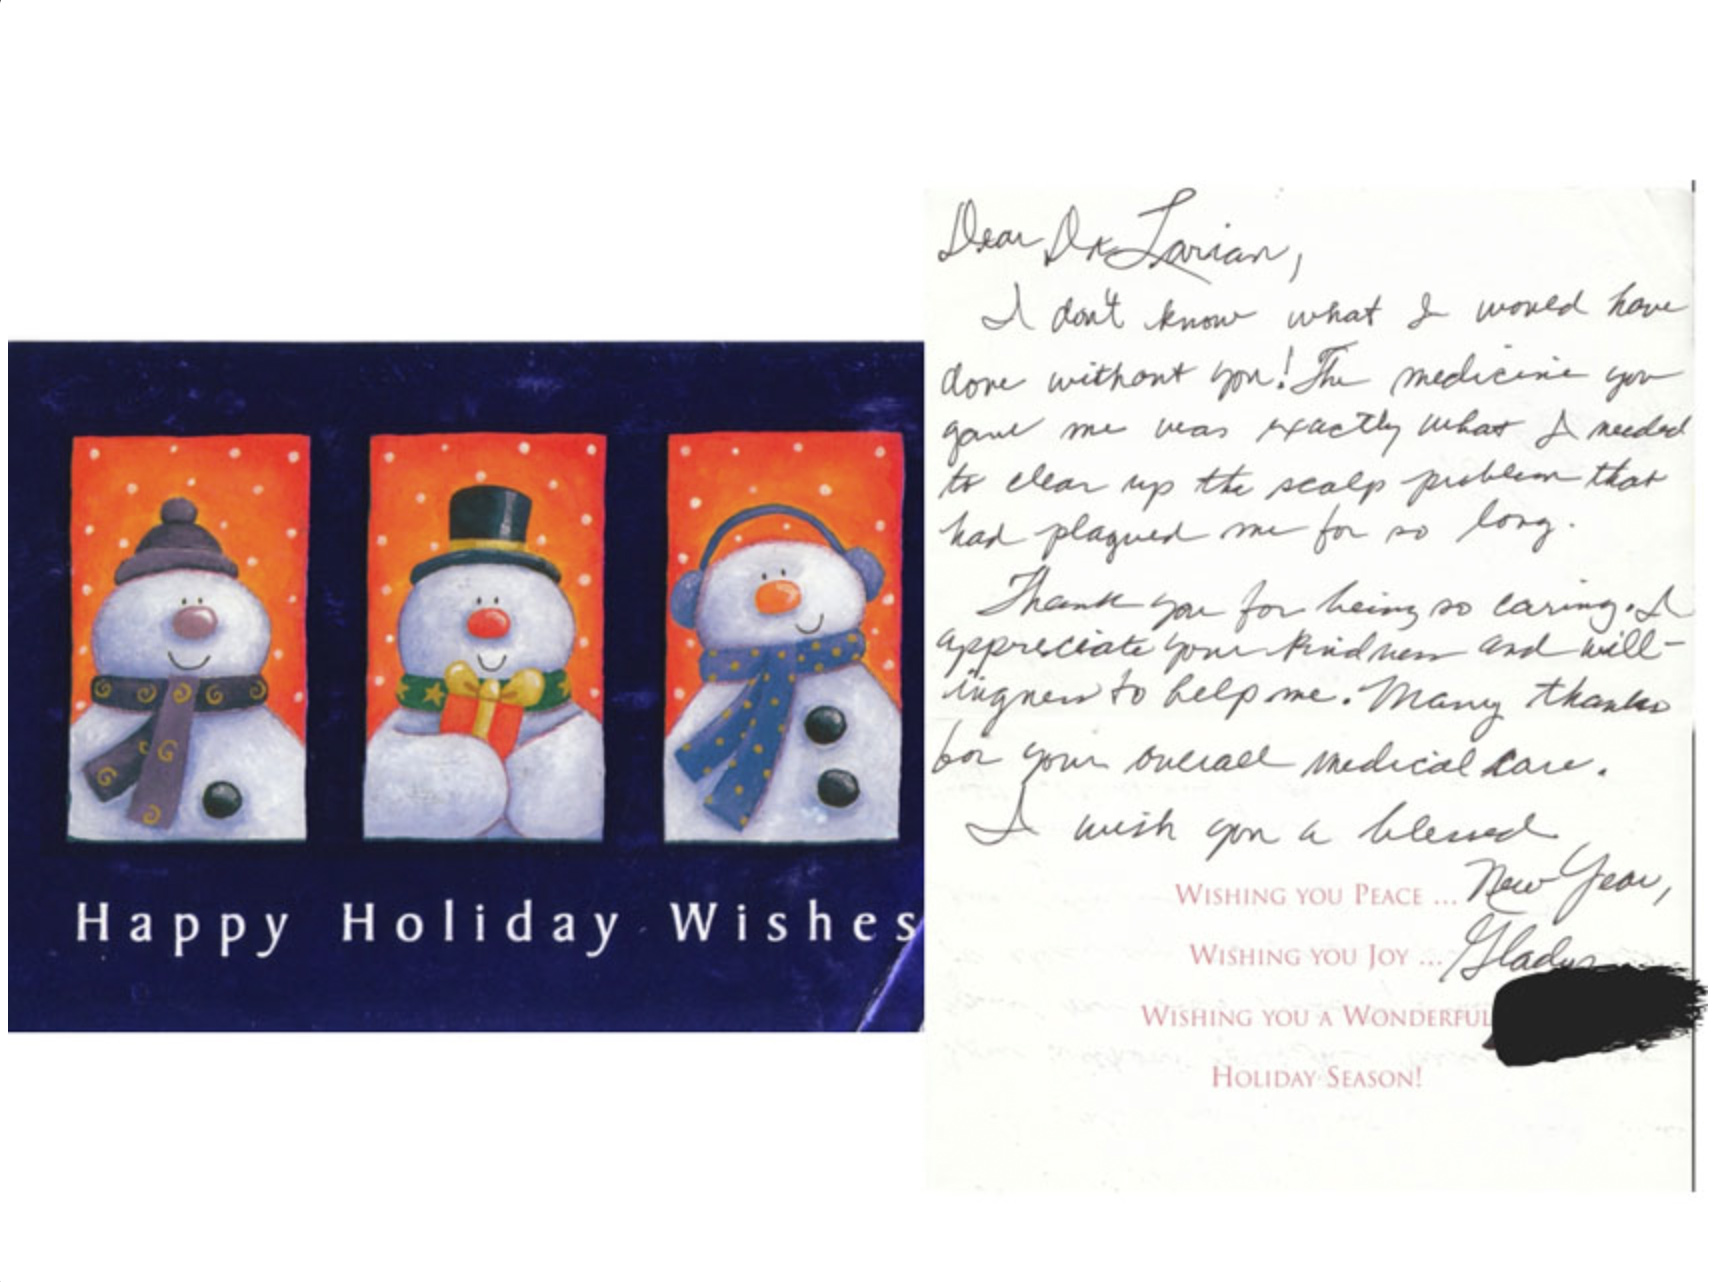 Happy Holiday Wishes
Dear Dr Larian,
I don't know what I would have
done without you! The medicine you
gave me was exactly what I needed
to clear up the scalp problem that
had plagued me for so long.
Thank you for being so caring. I
appreciate your kindness and will-
ingness to help me. Many thanks
for your overall medical care.
I wish you a blessed
New Year,
Gladys
WISHING YOU PEACE ...
WISHING YOU JOY ...
WISHING YOU A WONDERFUL
HOLIDAY SEASON!